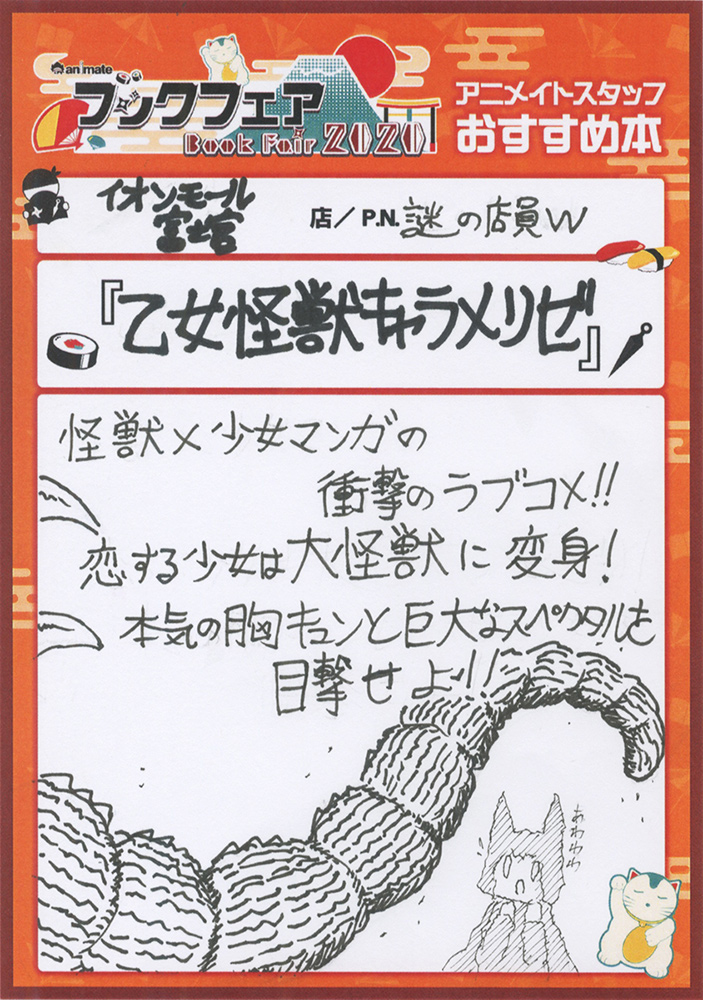 animate
ブックフェア
Book Fair 2020
アニメイトスタッフ
おすすめ本
イオンモール
宮崎
店/P.N.謎の店員W
『乙女怪獣キャラメリゼ』
怪獣×少女マンガの
衝撃のラブコメ!!
恋する少女は大怪獣に変身!
本気の胸キュンと巨大なスペクタルを
目撃せよ!!
あわわわ